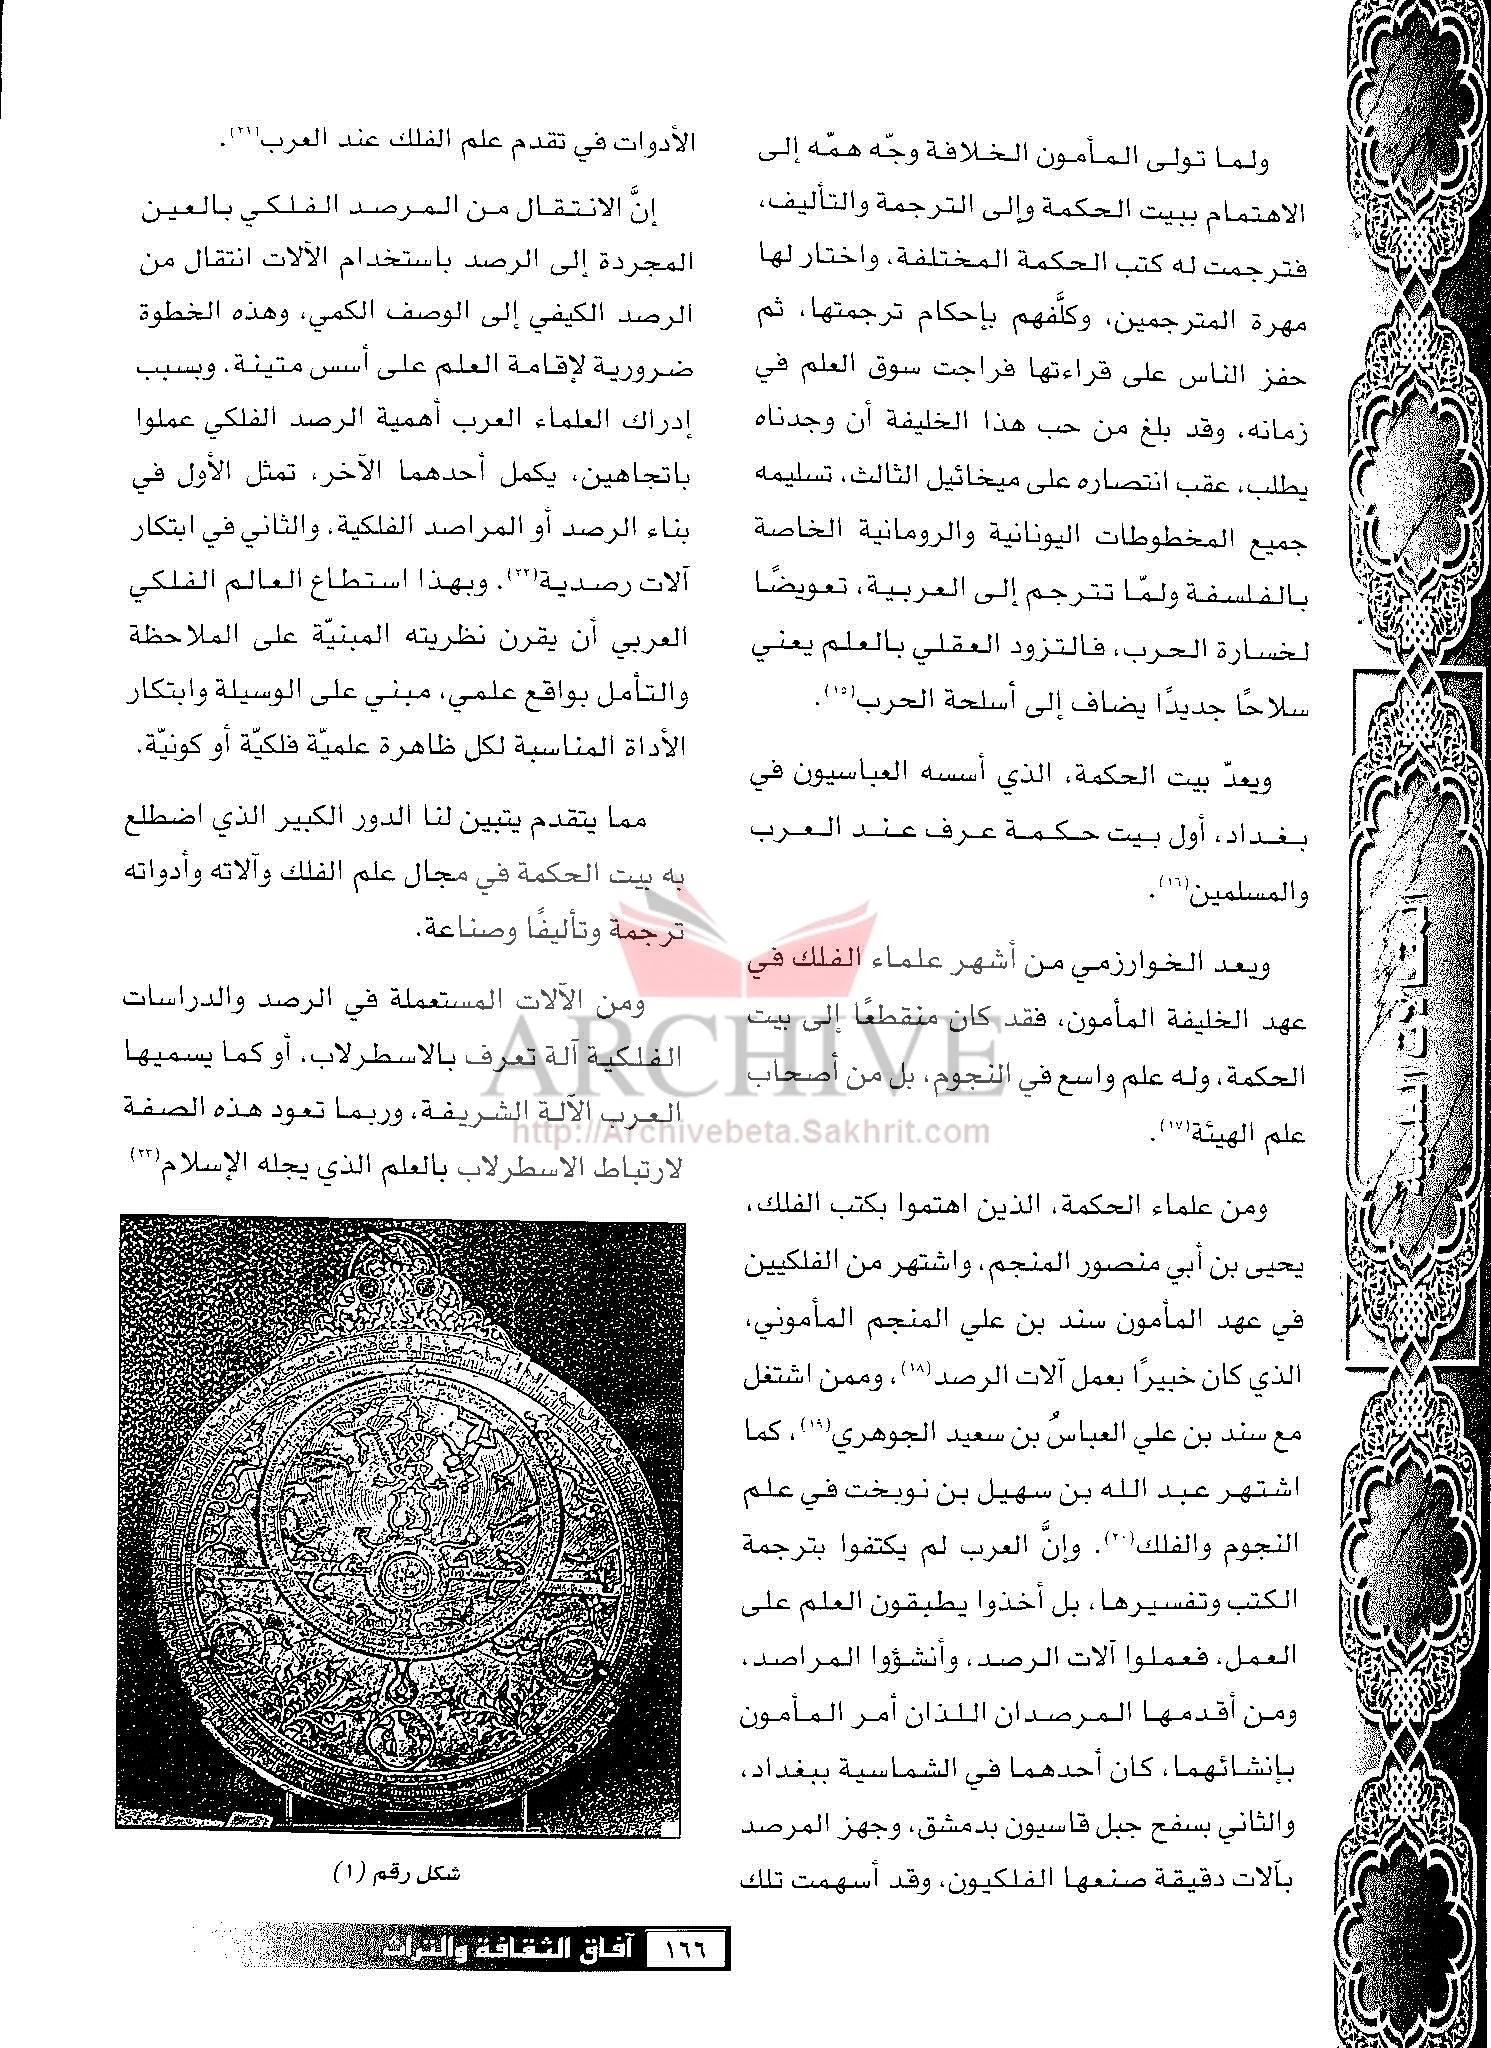 ولما تولى المأمون الخلافة وجّه همّه إلى
الاهتمام ببيت الحكمة وإلى الترجمة والتأليف،
فترجمت له كتب الحكمة المختلفة، واختار لها
مهرة المترجمين، وكلَّفهم بإحكام ترجمتها، ثم
حفز الناس على قراءتها فراجت سوق العلم في
زمانه، وقد بلغ من حب هذا الخليفة أن وجدناه
يطلب، عقب انتصاره على ميخائيل الثالث، تسليمه
جميع المخطوطات اليونانية والرومانية الخاصة
بالفلسفة ولمّا تترجم إلى العربية، تعويضًا
لخسارة الحرب، فالتزود العقلي بالعلم يعني
سلاحًا جديدًا يضاف إلى أسلحة الحرب(١٥).
ويعدّ بيت الحكمة، الذي أسسه العباسيون في
بغداد، أول بيت حكمة عرف عند العرب
والمسلمين(١٦).
ويعد الخوارزمي من أشهر علماء الفلك في
عهد الخليفة المأمون، فقد كان منقطعًا إلى بيت
الحكمة، وله علم واسع في النجوم، بل من أصحاب
علم الهيئة(١٧).
ومن علماء الحكمة، الذين اهتموا بكتب الفلك،
يحيى بن أبي منصور المنجم، واشتهر من الفلكيين
في عهد المأمون سند بن علي المنجم المأموني،
الذي كان خبيرًا بعمل آلات الرصد(١٨)، وممن اشتغل
مع سند بن علي العباسُ بن سعيد الجوهري(١٩)، كما
اشتهر عبد الله بن سهيل بن نوبخت في علم
النجوم والفلك(٢٠). وإنَّ العرب لم يكتفوا بترجمة
الكتب وتفسيرها، بل أخذوا يطبقون العلم على
العمل، فعملوا آلات الرصد، وأنشؤوا المراصد،
ومن أقدمها المرصدان اللذان أمر المأمون
بإنشائهما، كان أحدهما في الشماسية ببغداد،
والثاني بسفح جبل قاسيون بدمشق، وجهز المرصد
بآلات دقيقة صنعها الفلكيون، وقد أسهمت تلك
الأدوات في تقدم علم الفلك عند العرب(٢١).
إنَّ الانتقال من المرصد الفلكي بالعين
المجردة إلى الرصد باستخدام الآلات انتقال من
الرصد الكيفي إلى الوصف الكمي، وهذه الخطوة
ضرورية لإقامة العلم على أسس متينة، وبسبب
إدراك العلماء العرب أهمية الرصد الفلكي عملوا
باتجاهين، يكمل أحدهما الآخر، تمثل الأول في
بناء الرصد أو المراصد الفلكية، والثاني في ابتكار
آلات رصدية(٢٢). وبهذا استطاع العالم الفلكي
العربي أن يقرن نظريته المبنيّة على الملاحظة
والتأمل بواقع علمي، مبني على الوسيلة وابتكار
الأداة المناسبة لكل ظاهرة علميّة فلكيّة أو كونيّة.
مما يتقدم يتبين لنا الدور الكبير الذي اضطلع
به بيت الحكمة في مجال علم الفلك وآلاته وأدواته
ترجمة وتأليفًا وصناعة.
ومن الآلات المستعملة في الرصد والدراسات
الفلكية آلة تعرف بالاسطرلاب، أو كما يسميها
العرب الآلة الشريفة، وربما تعود هذه الصفة
لارتباط الاسطرلاب بالعلم الذي يجله الإسلام(٢٣)
شكل رقم (١)
ARCHIVE
http://Archivebeta.Sakhrit.com
١٦٦ آفاق الثقافة والتراث